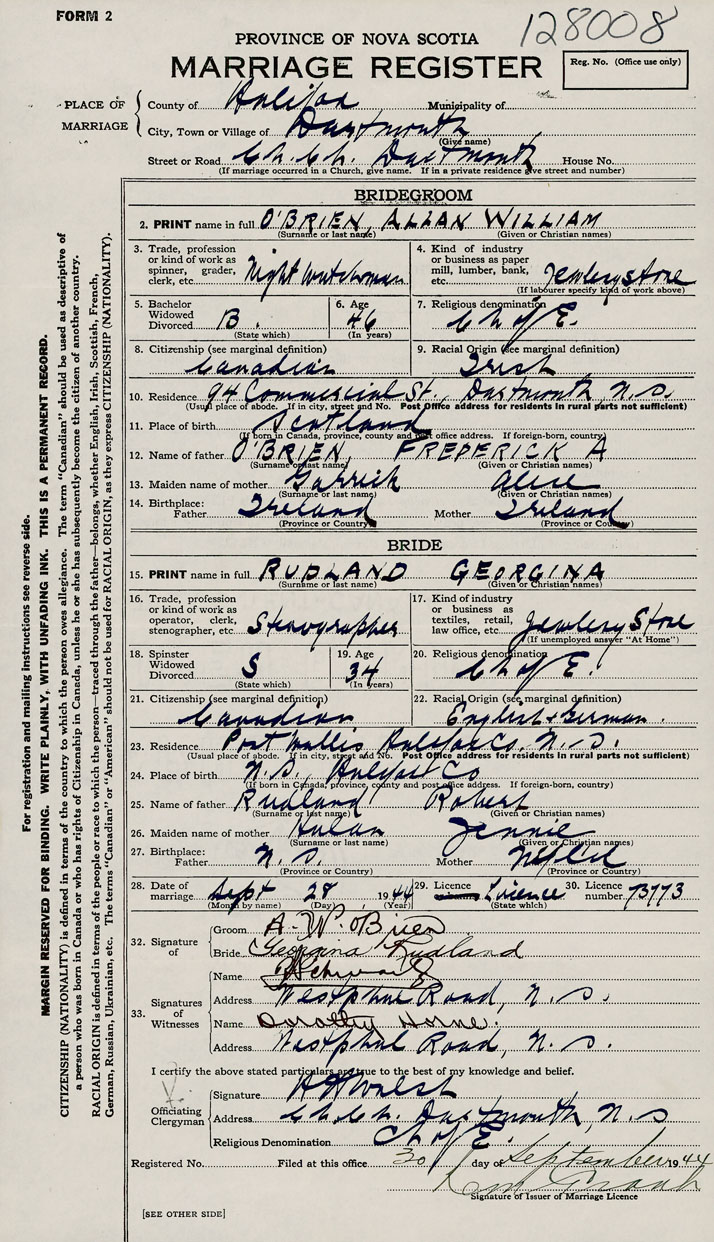 FORM 2
128008
PROVINCE OF NOVA SCOTIA
MARRIAGE REGISTER
Reg. No. (Office use only)
PLACE OF MARRIAGE
County of Halifax Municipality of
City, Town or Village of Dartmouth
(Give name)
Street or Road Ch. Ch. Dartmouth House No.
(If marriage occurred in a Church, give name. If in a private residence give street and number)
BRIDEGROOM
2. PRINT name in full O'BRIEN, ALLAN WILLIAM
(Surname or last name) (Given or Christian names)
3. Trade, profession or kind of work as spinner, grader, clerk, etc. Night watchman
4. Kind of industry or business as paper mill, lumber, bank, etc. Jewlery store
(If labourer specify kind of work above)
5. Bachelor Widowed Divorced B.
(State which)
6. Age 46
(In years)
7. Religious denomination Ch of E.
8. Citizenship (see marginal definition) Canadian
9. Racial Origin (see marginal definition) Irish
10. Residence 94 Commercial St., Dartmouth, N.S.
(Usual place of abode. If in city, street and No. Post Office address for residents in rural parts not sufficient)
11. Place of birth Scotland
(If born in Canada, province, county and post office address. If foreign-born, country)
12. Name of father O'BRIEN, FREDERICK A
(Surname or last name) (Given or Christian names)
13. Maiden name of mother Garrick Alice
(Surname or last name) (Given or Christian names)
14. Birthplace: Father Ireland Mother Ireland
(Province or Country) (Province or Country)
BRIDE
15. PRINT name in full RUDLAND GEORGINA
(Surname or last name) (Given or Christian names)
16. Trade, profession or kind of work as operator, clerk, stenographer, etc. Stenographer
17. Kind of industry or business as textiles, retail, law office, etc. Jewlery Store
(If unemployed answer "At Home")
18. Spinster Widowed Divorced S
(State which)
19. Age 34
(In years)
20. Religious denomination Ch of E.
21. Citizenship (see marginal definition) Canadian
22. Racial Origin (see marginal definition) English + German.
23. Residence Port Wallis Halifax Co. N.S.
(Usual place of abode. If in city, street and No. Post Office address for residents in rural parts not sufficient)
24. Place of birth N.S., Halifax Co
(If born in Canada, province, county and post office address. If foreign-born, country)
25. Name of father Rudland Robert
(Surname or last name) (Given or Christian names)
26. Maiden name of mother Jennie
(Surname or last name) (Given or Christian names)
27. Birthplace: Father N.S. Mother Nfld
(Province or Country) (Province or Country)
28. Date of marriage Sept 28 1944
(Month by name) (Day) (Year)
29. Licence Licence
(State which)
30. Licence number 73773
32. Signature of
Groom A. W. O'Brien
Bride Georgina Rudland
33. Signatures of Witnesses
Name
Address Westphal Road, N.S.
Name Dorothy Horne.
Address Westphal Road, N.S.
I certify the above stated particulars are true to the best of my knowledge and belief.
Officiating Clergyman
Signature
Address Ch. Ch. Dartmouth, N.S
Religious Denomination Ch of E.
Registered No. Filed at this office 30 day of September 1944
Signature of Issuer of Marriage Licence
[SEE OTHER SIDE]
For registration and mailing instructions see reverse side.
MARGIN RESERVED FOR BINDING. WRITE PLAINLY, WITH UNFADING INK. THIS IS A PERMANENT RECORD.
CITIZENSHIP (NATIONALITY) is defined in terms of the country to which the person owes allegiance. The term "Canadian" should be used as descriptive of
a person who was born in Canada or who has rights of Citizenship in Canada, unless he or she has subsequently become the citizen of another country.
RACIAL ORIGIN is defined in terms of the people or race to which the person—traced through the father—belongs, whether English, Irish, Scottish, French,
German, Russian, Ukrainian, etc. The terms "Canadian" or "American" should not be used for RACIAL ORIGIN, as they express CITIZENSHIP (NATIONALITY).